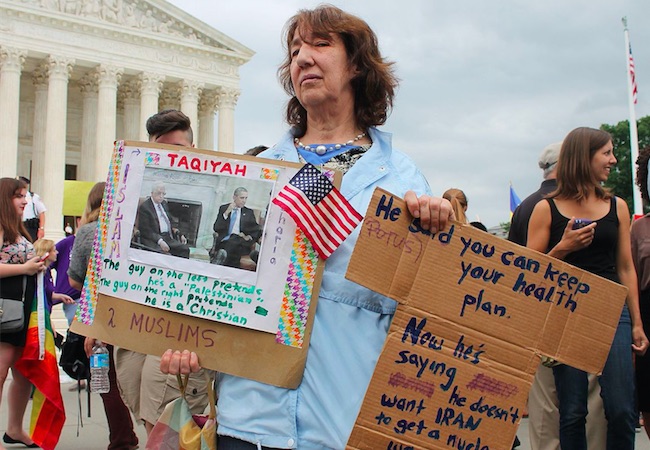 TAQIYAH
ISLAM
Sharia
The guy on the left pretends
he's a "Palestinian"
The guy on the right pretends
he is a Christian
2 MUSLIMS
He said you can keep
(POTUS)
your health
plan.
Now he's
saying
he doesn't
want IRAN
to get a nuclea